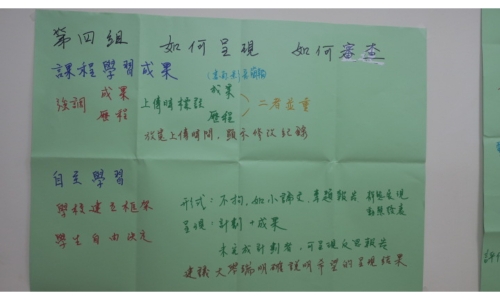 第四組 如何呈現 如何審查
課程學習成果
強調 成果 上傳時標註 成果 二者並重
歷程 歷程
放寬上傳時間,顯示修改紀錄
自主學習
學校建立框架
學生自由決定
形式:不拘,如小論文,專題報告
呈現:計劃+成果
未完成計劃者,可呈現反思報告
建議大學端明確說明希望的呈現結果